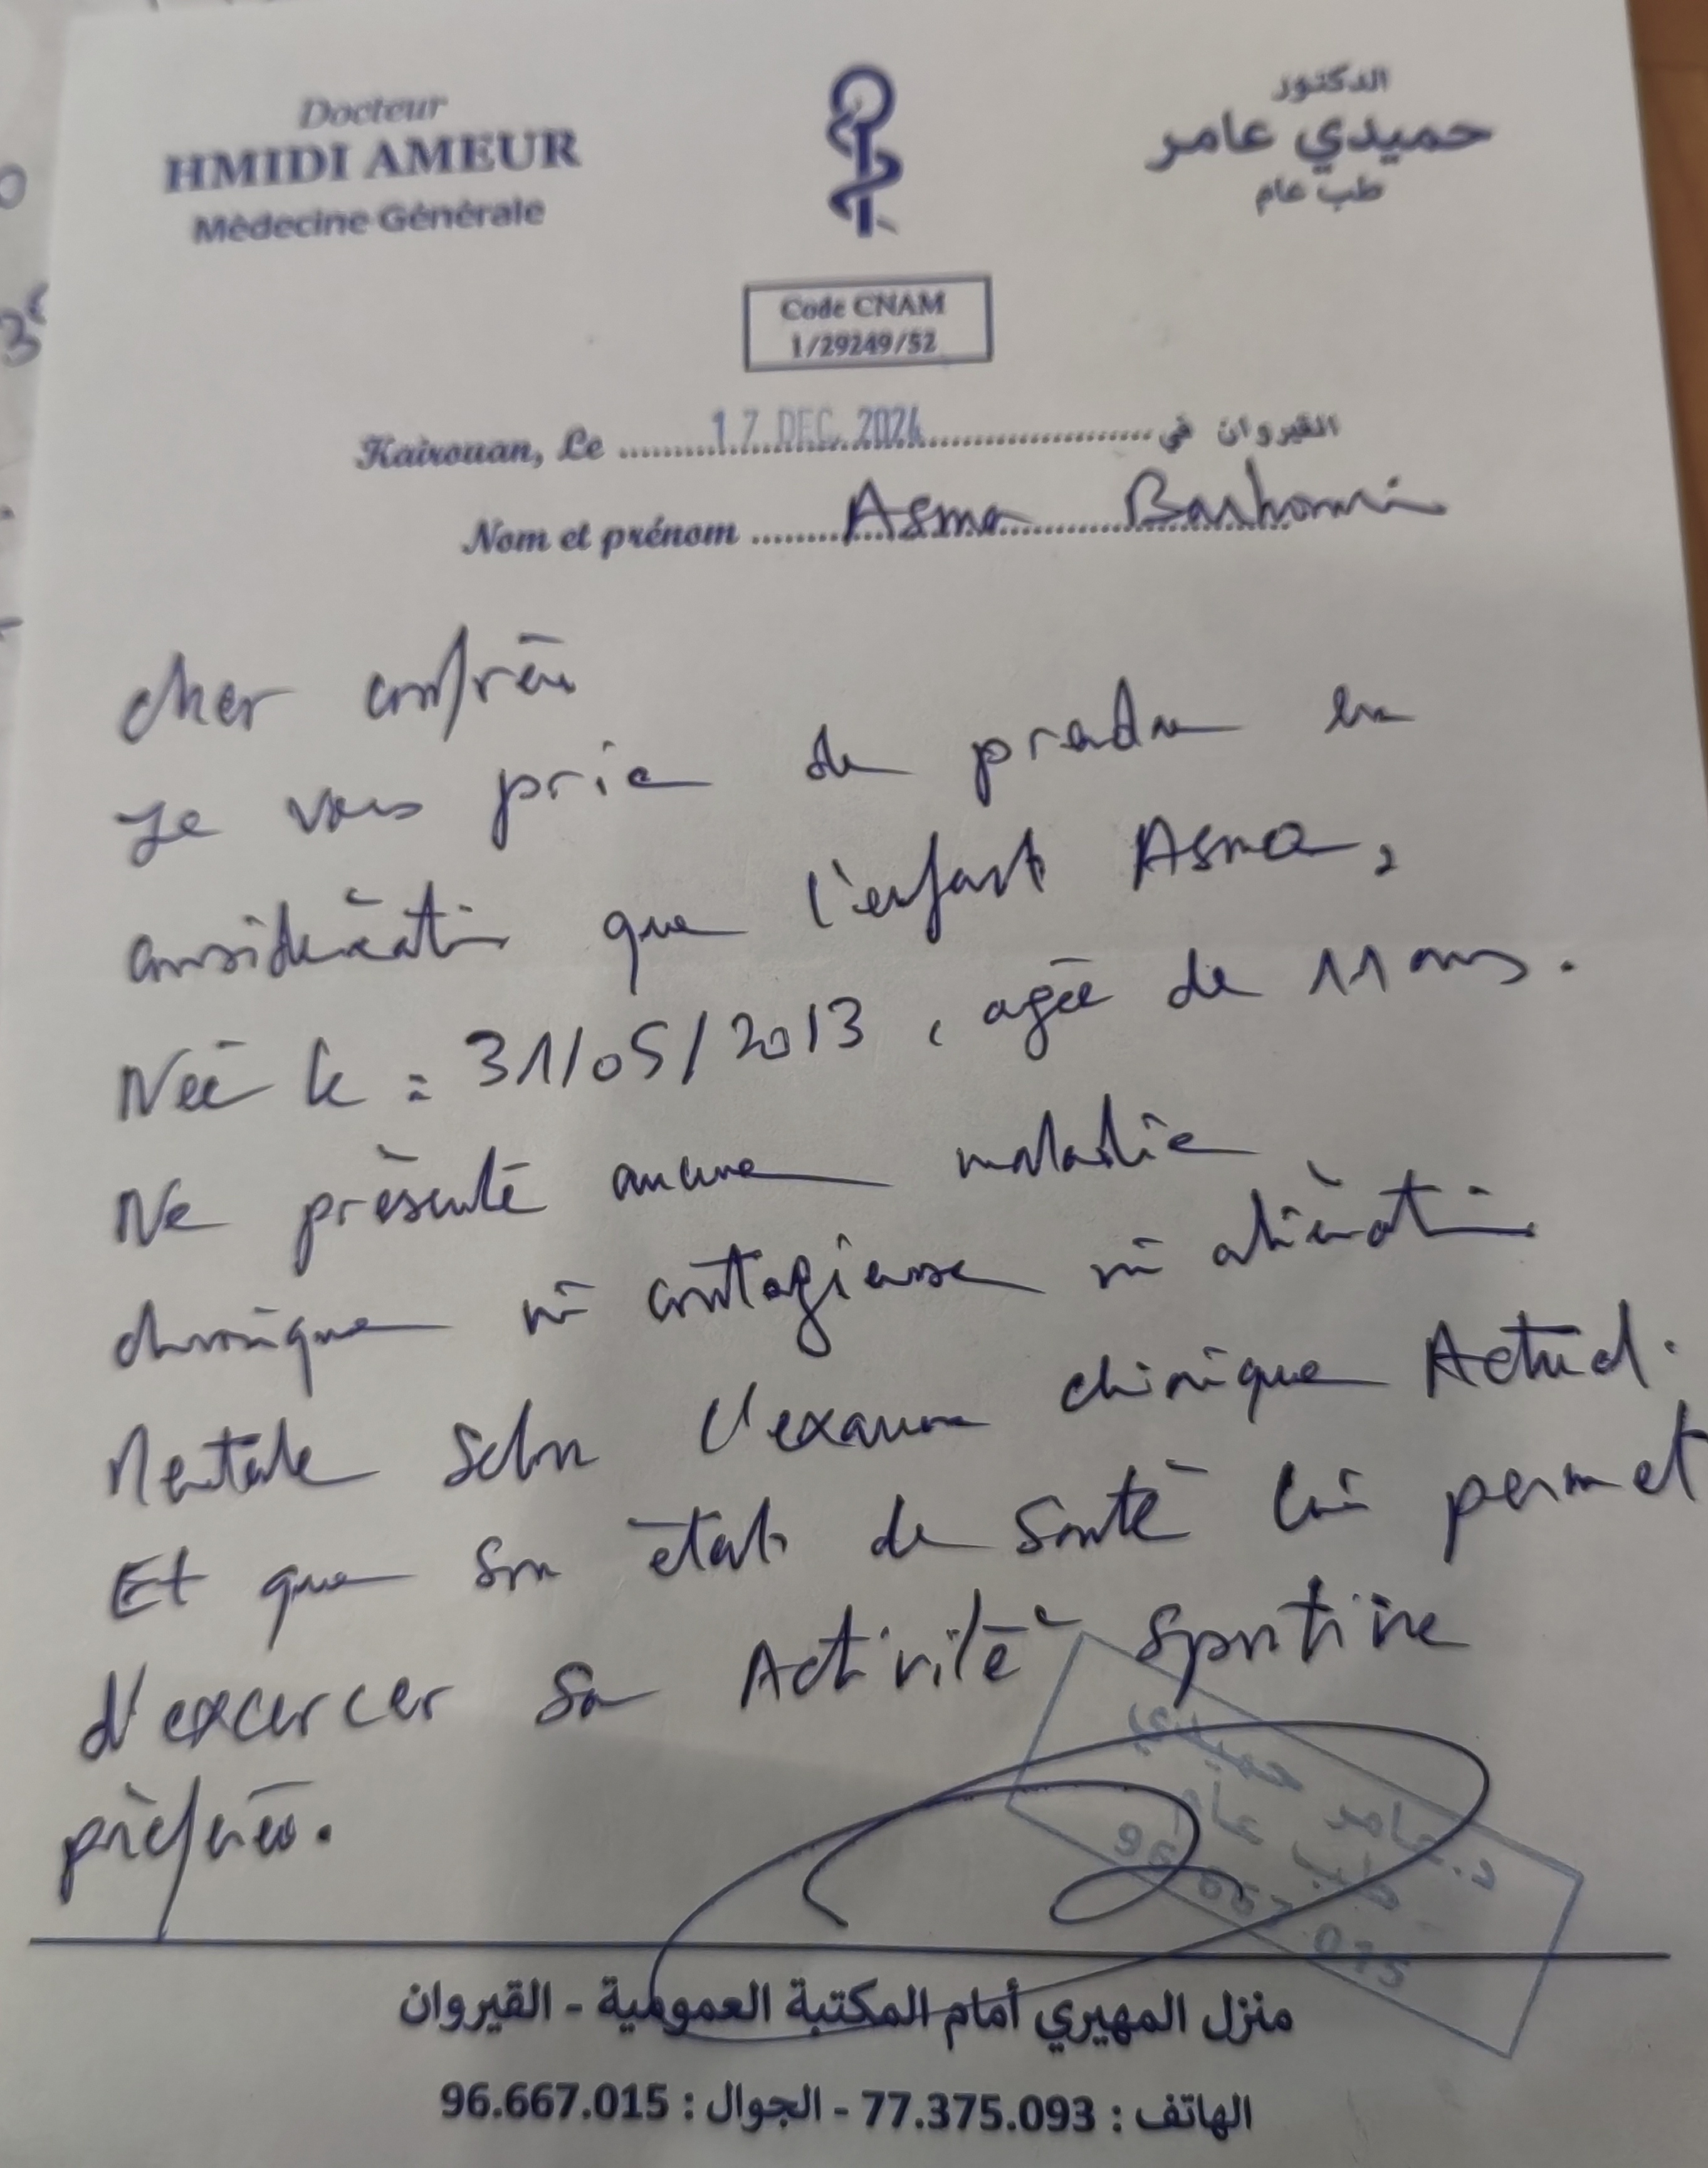 Docteur
HMIDI AMEUR
Médecine Générale
الدكتور
حميدي عامر
طب عام
Code CNAM
1/29249/52
Kairouan, Le 17 DEC. 2024 القيروان في
Nom et prénom Asma Barhoumi
cher confrère
Je vous prie de prendre en
considération que l'enfant Asma,
Née le : 31/05/2013, agée de 11 ans.
Ne présente aucune maladie
chronique ni contagieuse ni aliénation
Mentale selon l'examen clinique Actuel.
Et que son état de santé lui permet
d'excercer sa Activité sportive
préférée.
د. عامر حميدي
طب عام
96 667 015
منزل المهيري أمام المكتبة العمومية - القيروان
الهاتف : 77.375.093 - الجوال : 96.667.015